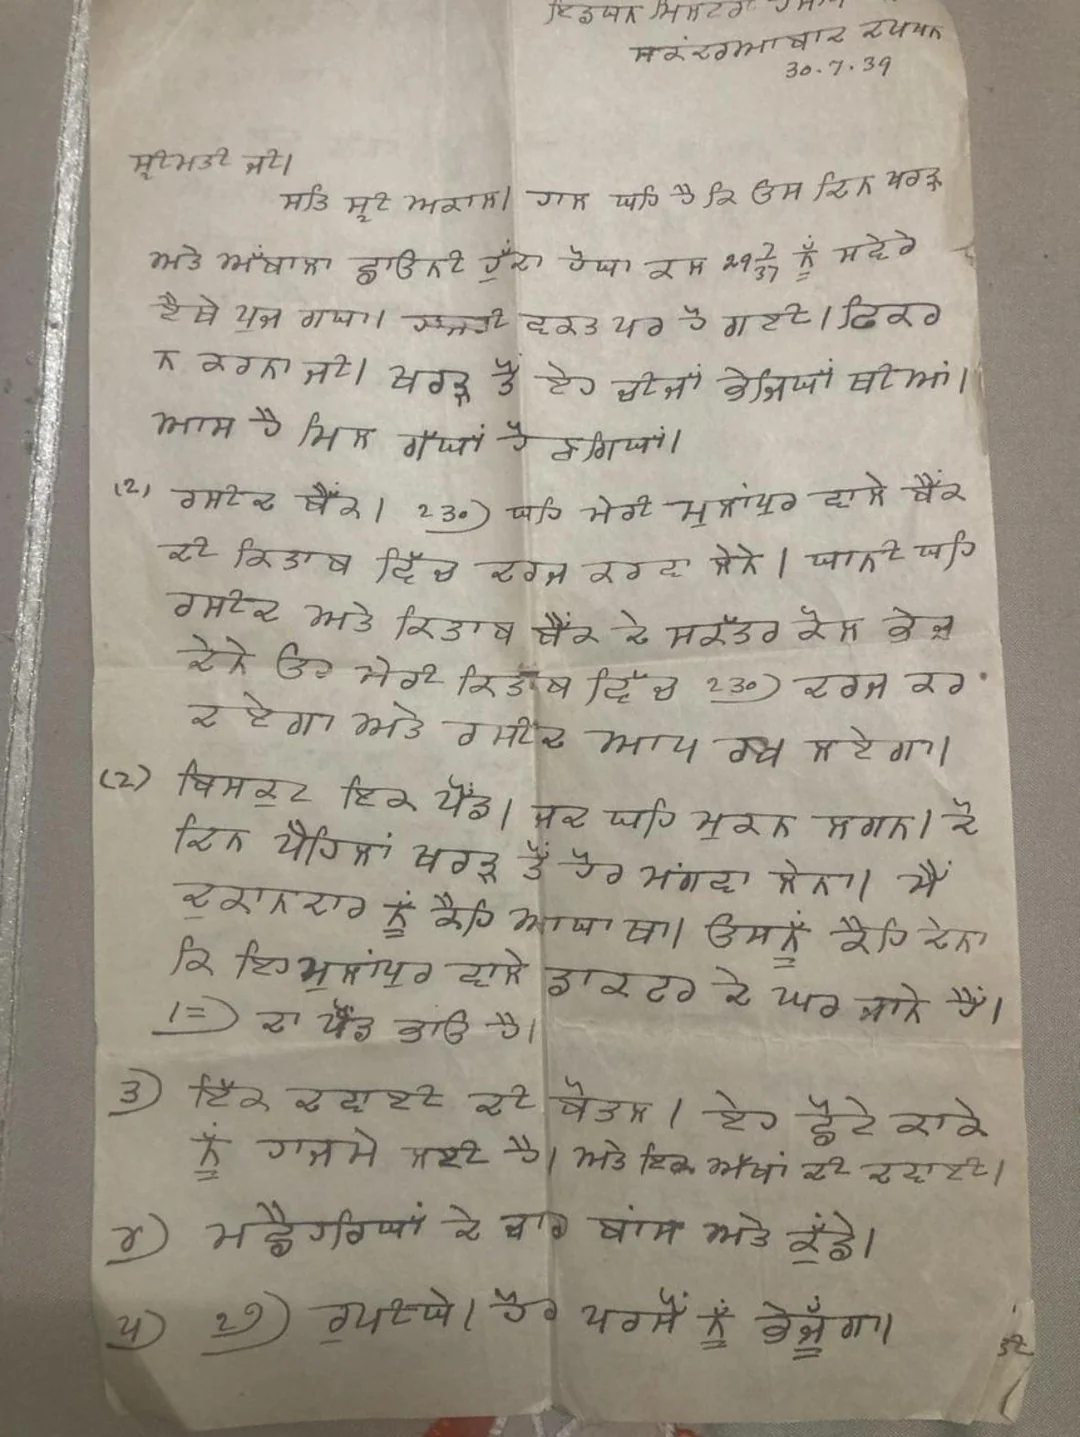 ਇੰਡਯਨ ਮਿਲਟਰੀ
ਸਕੰਦਰਾਆਬਾਦ ਦਖਖਨ
30.7.39
ਸ੍ਰੀਮਤੀ ਜੀ।
ਸਤਿ ਸ੍ਰੀ ਅਕਾਲ। ਹਾਲ ਯਹਿ ਹੈ ਕਿ ਉਸ ਦਿਨ ਖਰੜ
ਅਤੇ ਅੰਬਾਲਾ ਛਾਉਨੀ ਹੁੰਦਾ ਹੋਯਾ ਕਲ 29 7/39 ਨੂੰ ਸਵੇਰੇ
ਏਥੇ ਪੁਜ ਗਯਾ। ਹਾਜਰੀ ਵਕਤ ਪਰ ਹੋ ਗਈ। ਫਿਕਰ
ਨ ਕਰਨਾ ਜੀ। ਖਰੜ ਤੋਂ ਏਹ ਚੀਜਾਂ ਭੇਜਿਯਾਂ ਥੀਆਂ।
ਆਸ ਹੈ ਮਿਲ ਗੱਯਾਂ ਹੋਣਗਿਯਾਂ।
(2) ਰਸੀਦ ਬੈਂਕ। 230) ਯਹਿ ਮੇਰੀ ਮੁਲਾਂਪੁਰ ਵਾਲੇ ਬੈਂਕ
ਦੀ ਕਿਤਾਬ ਵਿੱਚ ਦਰਜ ਕਰਵਾ ਲੇਨੇ। ਯਾਨੀ ਯਹਿ
ਰਸੀਦ ਅਤੇ ਕਿਤਾਬ ਬੈਂਕ ਦੇ ਸਕੱਤਰ ਕੋਲ ਭੇਜ
ਦੇਨੇ ਓਹ ਮੇਰੀ ਕਿਤਾਬ ਵਿੱਚ 230) ਦਰਜ ਕਰ
ਦਏਗਾ ਅਤੇ ਰਸੀਦ ਆਪ ਰਖ ਲਏਗਾ।
(2) ਬਿਸਕੁਟ ਇਕ ਪੌਂਡ। ਜਦ ਯਹਿ ਮੁਕਨ ਲਗਨ। ਦੋ
ਦਿਨ ਪੈਹਿਲਾਂ ਖਰੜ ਤੋਂ ਹੋਰ ਮੰਗਵਾ ਲੇਨਾ। ਮੈਂ
ਦੁਕਾਨਦਾਰ ਨੂੰ ਕੈਹਿ ਆਯਾ ਥਾ। ਉਸਨੂੰ ਕੈਹਿ ਦੇਨਾ
ਕਿ ਇਹ ਮੁਲਾਂਪੁਰ ਵਾਲੇ ਡਾਕਟਰ ਦੇ ਘਰ ਜਾਨੇ ਹੈਂ।
1=) ਦਾ ਪੌਂਡ ਭਾਉ ਹੈ।
3) ਇੱਕ ਦਵਾਈ ਦੀ ਬੋਤਲ। ਏਹ ਛੋਟੇ ਕਾਕੇ
ਨੂੰ ਹਾਜਮੇ ਲਈ ਹੈ। ਅਤੇ ਇਕ ਅੱਖਾਂ ਦੀ ਦਵਾਈ।
੪) ਮਛੈਹਰਿਯਾਂ ਦੇ ਚਾਰ ਬਾਂਸ ਅਤੇ ਕੁੰਡੇ।
੫) 2੭) ਰੁਪੀਯੇ। ਹੋਰ ਪਰਸੋਂ ਨੂੰ ਭੇਜੂੰਗਾ।